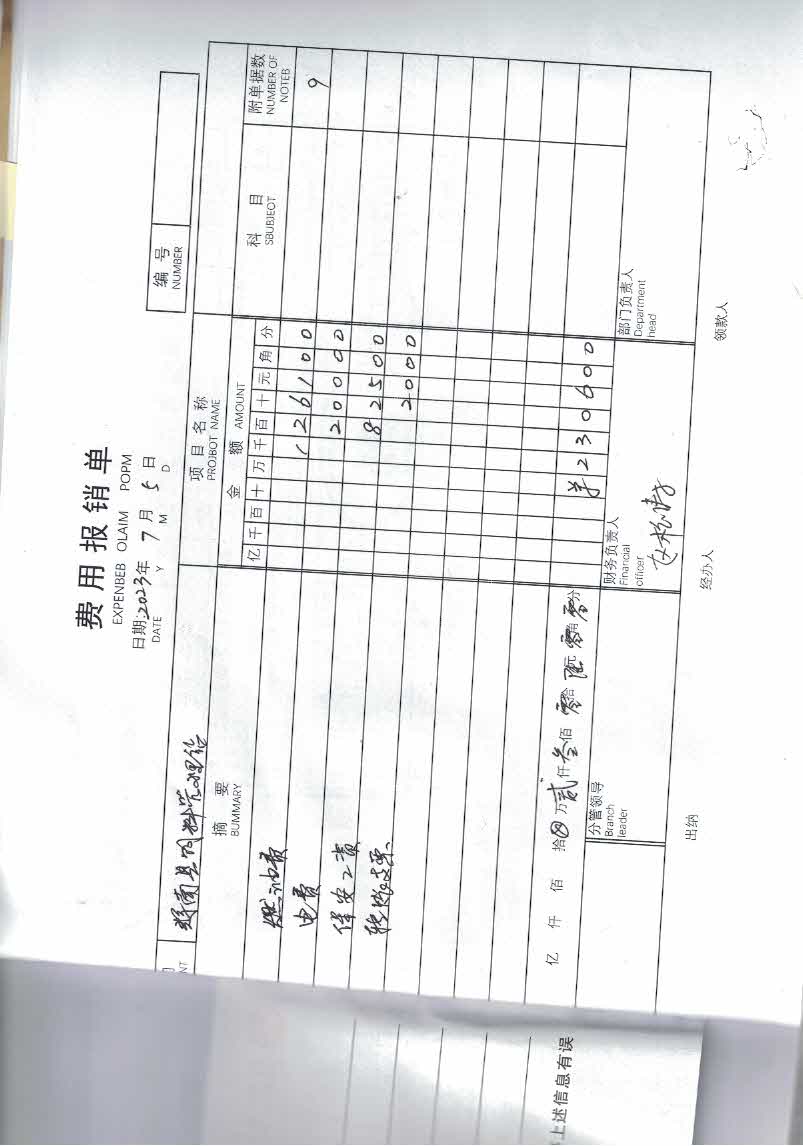 费用报销单
EXPENBEB OLAIM POPM
日期:2023年 7月 5日
DATE Y M D
编号
NUMBER
NT
项目名称
PROJBOT NAME
摘要
BUMMARY
金额 AMOUNT
科目
SBUBJEOT
附单据数
NUMBER OF
NOTEB
亿 千 百 十 万 千 百 十 元 角 分
燃油费 1 2 6 1 0 0 9
电费 2 0 0 0 0
保安工资 8 2 5 0 0
2 0 0 0
亿 仟 佰 拾 万 贰 仟 叁 佰 零 拾 陆 元 零 角 零 分 ¥ 2 3 0 6 0 0
分管领导
Branch
leader
财务负责人
Financial
officer
部门负责人
Department
head
出纳 经办人 领款人
上述信息有误